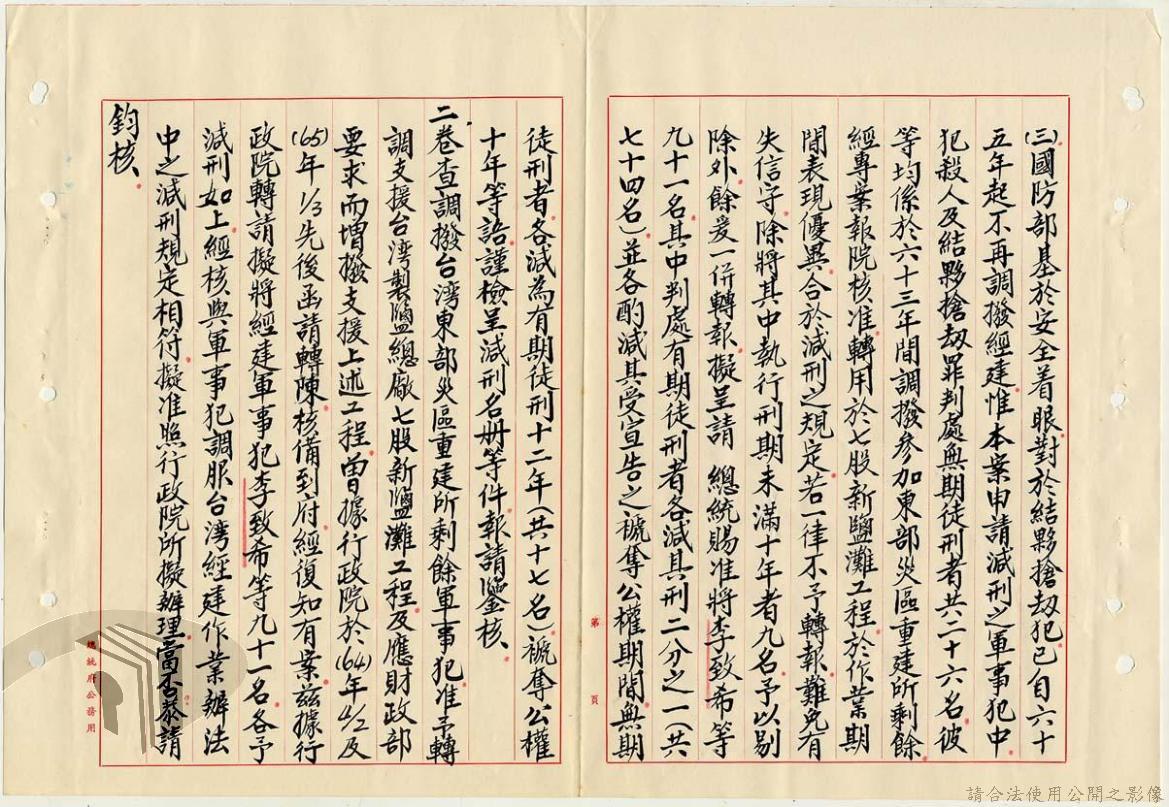 (三)國防部基於安全着眼對於結夥搶劫犯已自六十
五年起不再調撥經建惟本案申請減刑之軍事犯中
犯殺人及結夥搶劫罪判處無期徒刑者共二十六名彼
等均係於六十三年間調撥參加東部災區重建所剩餘
經專案報院核准轉用於七股新鹽灘工程於作業期
間表現優異合於減刑之規定若一律不予轉報難免有
失信守除將其中執行刑期未滿十年者九名予以剔
除外餘爰一併轉報擬呈請 總統賜准將李致希等
九十一名其中判處有期徒刑者各減其刑二分之一(共
七十四名)並各酌減其受宣告之褫奪公權期間無期
徒刑者各減為有期徒刑十二年(共十七名)褫奪公權
十年等語謹檢呈減刑名册等件報請鑒核
二卷查調撥台湾東部災區重建所剩餘軍事犯准予轉
調支援台湾製鹽總廠七股新鹽灘工程及應財政部
要求而增撥支援上述工程曾據行政院於(64)年4/2及
(65)年1/3先後函請轉陳核備到府經復知有案兹據行
政院轉請擬將經建軍事犯李致希等九十一名各予
減刑如上經核與軍事犯調服台湾經建作業辦法
中之減刑規定相符擬准照行政院所擬辦理當否恭請
鈞核
第 頁
總統府公務用
請合法使用公開之影像